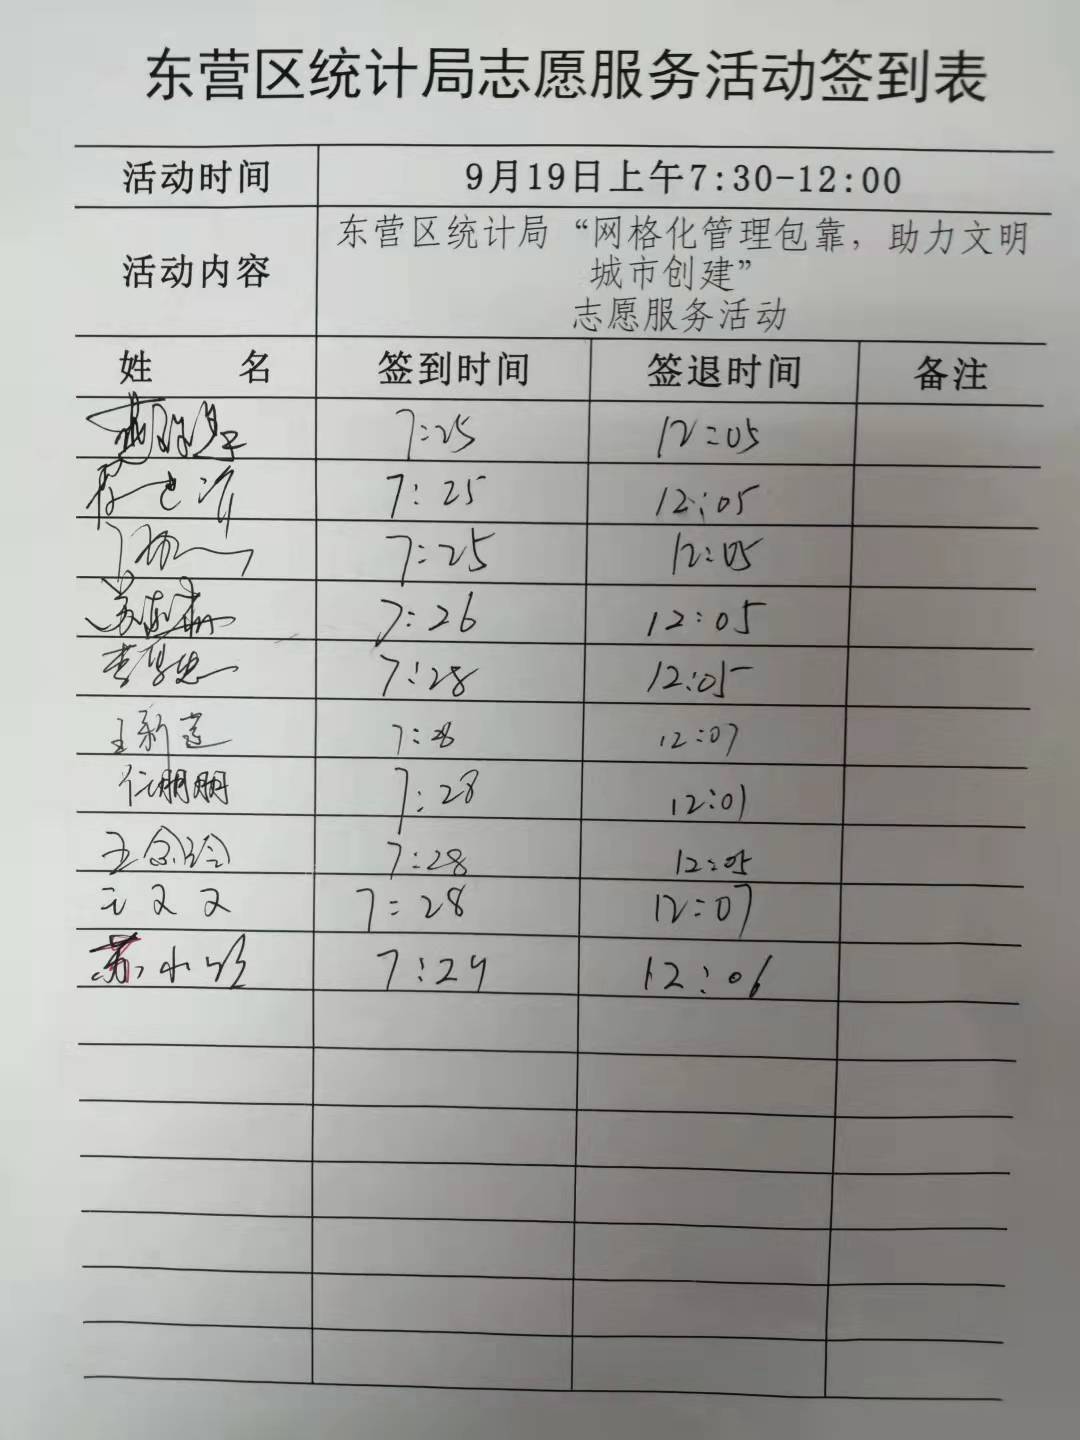 东营区统计局志愿服务活动签到表
活动时间 9月19日上午7:30-12:00
活动内容 东营区统计局“网格化管理包靠，助力文明
城市创建”
志愿服务活动
姓 名 签到时间 签退时间 备注
7:25 12:05
7:25 12:05
7:25 12:05
7:26 12:05
7:28 12:05
王新莲 7:28 12:07
任朋朋 7:28 12:01
7:28 12:05
王文文 7:28 12:07
苏小欣 7:29 12:06